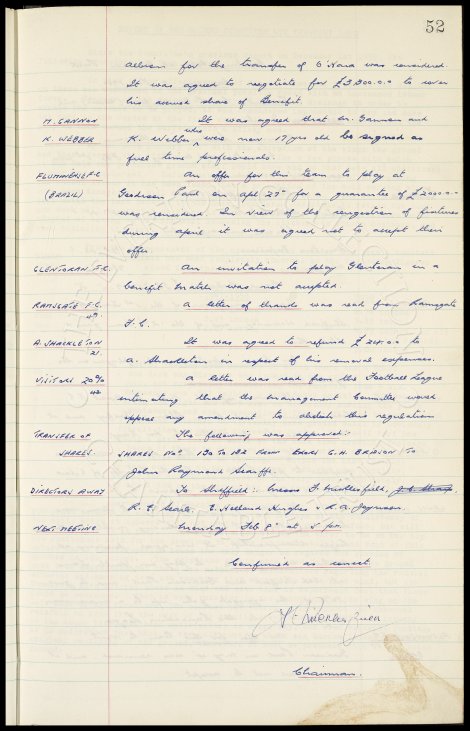 52
Albion for the transfer of O'Hara was considered.
It was agreed to negotiate for £3,500.0.0 to cover
his accrued share of Benefit.
M. GANNON It was agreed that M. Gannon and
K. WEBBER K. Webber who were now 17 yrs old be signed as
full time professionals.
FLUMINENSE F.C An offer for this team to play at
(BRAZIL) Goodison Park on Apl 29th for a guarantee of £2000.0.0
was considered. In view of the congestion of fixtures
during April it was agreed not to accept their
offer.
GLENTORAN F.C. An invitation to play Glentoran in a
benefit match was not accepted.
RAMSGATE F.C. A letter of thanks was read from Ramsgate
F.C.
A. SHACKLETON It was agreed to refund to
21. A. Shackleton in respect of his removal expenses.
VISITORS 20% A letter was read from the Football League
42 intimating that the Management Committee would
oppose any amendment to abolish this regulation
TRANSFER OF The following was approved:-
SHARES. SHARES Nos 130 TO 132 FROM EXORS G.H. TO
John Raymond Searffe.
DIRECTORS AWAY To Sheffield:- Messrs F. Micklesfield, J.C. Sharp,
R.E. Searle, E. Holland Hughes & R.A. Joynson.
NEXT MEETING Monday Feb 8th at 5 pm.
Confirmed as correct.
Chairman.